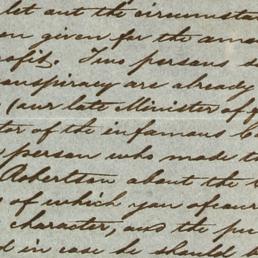 let out the circumsta
en given for the amo
ofit. Two persons s
onspiracy are already
(our late Minister of
tor of the infamous
person who made t
Robertson about the
of which you of cour
character, and the pu
d in case he should b